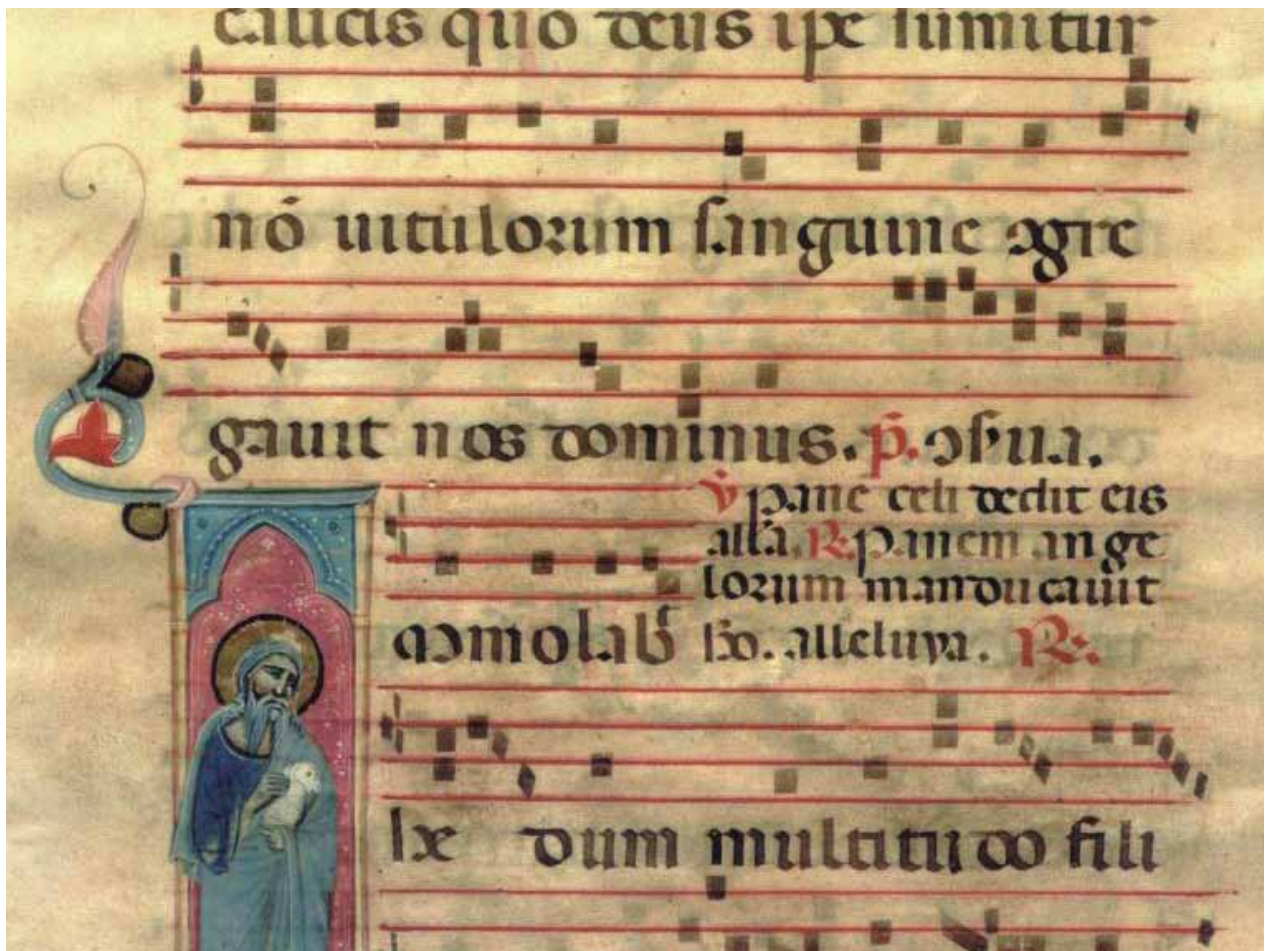 calicis quo deus ip̄e sumitur
nō uitulorum sanguine ɔgre
gauit nos dominus. p̄. ɔs̄ua.
℣ pane celi dedit eis
all̄a. ℟. panem ange
lorum manducauit
Immolab̄ ho. alleluya. ℟.
he dum multitudo fili